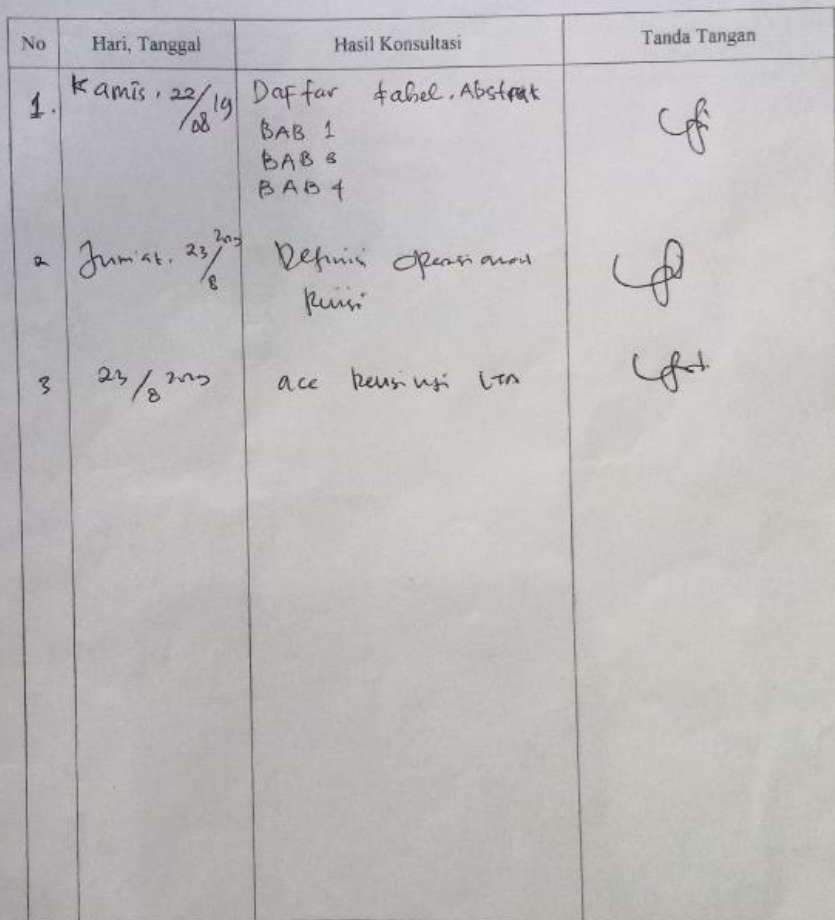 No Hari, Tanggal Hasil Konsultasi Tanda Tangan
1. Kamis, 22/08/19 Daftar tabel, Abstrak
BAB 1
BAB 3
BAB 4
2 Jum'at, 23/8 Definisi operasional
Revisi
3 23/8 acc